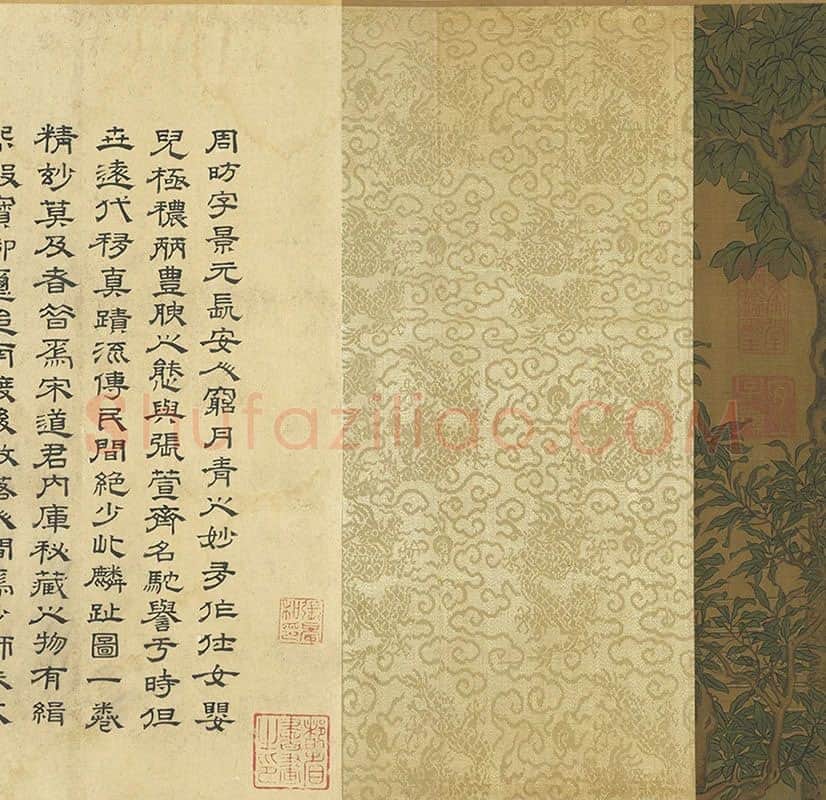 周昉字景元長安人窮丹青之妙多作仕女嬰
兒極穠麗豐腴之態與張萱齊名馳譽于時但
世遠代移真蹟流傳民間絕少此麟趾圖一卷
精妙莫及者昔爲宋道君內庫秘藏之物有緝
熙殿寶印
都省書畫之印
Shufaziliao.COM